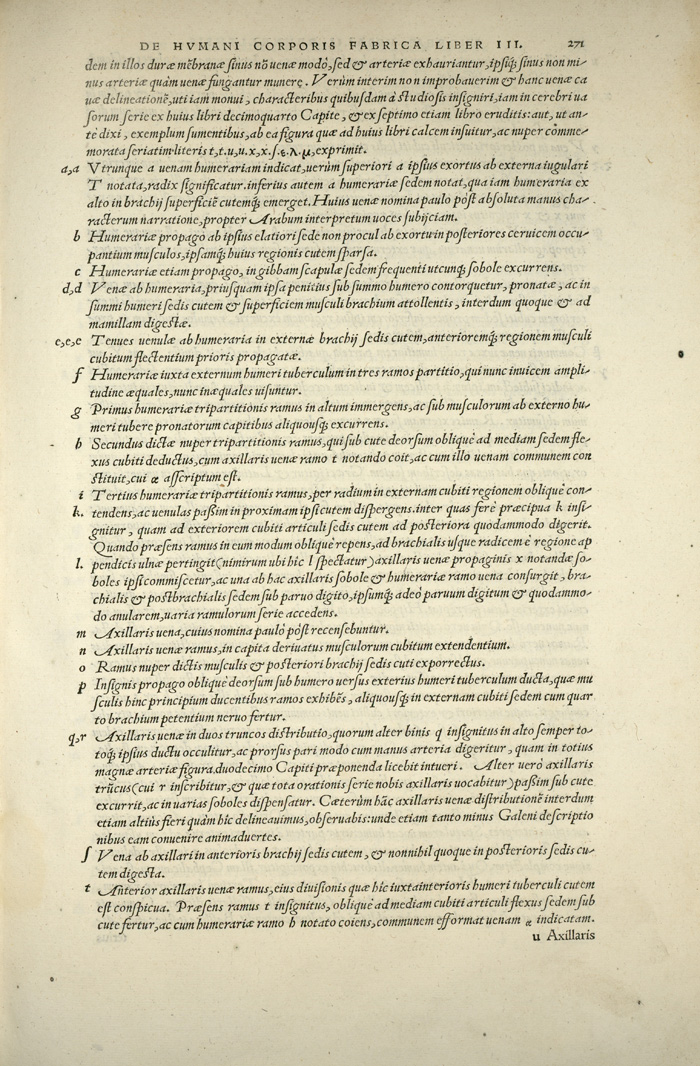 DE HVMANI CORPORIS FABRICA LIBER III. 271
dem in illos duræ mēbranæ sinus nō uenæ modò, sed & arteriæ exhauriantur, ipsiq́; sinus non mi-
nus arteriæ quàm uenæ fungantur munere. Verùm interim non improbauerim & hanc uenæ ca
uæ delineationē, uti iam monui, characteribus quibusdam à studiosis insigniri, iam in cerebri ua
sorum serie ex huius libri decimoquarto Capite, & ex septimo etiam libro eruditis: aut, ut an-
tè dixi, exemplum sumentibus, ab ea figura quæ ad huius libri calcem insuitur, ac nuper cōme-
morata seriatim literis t, t. u, u. x, x. ſ. ε. λ. μ, exprimit.
a, a Vtrunque a uenam humerariam indicat, uerùm superiori a ipsius exortus ab externa iugulari
T notata, radix significatur. inferius autem a humerariæ sedem notat, qua iam humeraria ex
alto in brachij superficiē cutemq́; emerget. Huius uenæ nomina paulò pòst absoluta manus cha-
racterum narratione, propter Arabum interpretum uoces subijciam.
b Humerariæ propago ab ipsius elatiori sede non procul ab exortu in posteriores ceruicem occu-
pantium musculos, ipsamq́; huius regionis cutem sparsa.
c Humerariæ etiam propago, in gibbam scapulæ sedem frequenti utcunq́; sobole excurrens.
d, d Venæ ab humeraria, priusquam ipsa penitius sub summo humero contorquetur, pronatæ, ac in
summi humeri sedis cutem & superficiem musculi brachium attollentis, interdum quoque & ad
mamillam digestæ.
e, e, e Tenues uenulæ ab humeraria in externæ brachij sedis cutem, anterioremq́; regionem musculi
cubitum flectentium prioris propagatæ.
f Humerariæ iuxta externum humeri tuberculum in tres ramos partitio, qui nunc inuicem ampli-
tudine æquales, nunc inæquales uisuntur.
g Primus humerariæ tripartitionis ramus in altum immergens, ac sub musculorum ab externo hu-
meri tubere pronatorum capitibus aliquousq́; excurrens.
h Secundus dictæ nuper tripartitionis ramus, qui sub cute deorsum obliquè ad mediam sedem fle-
xus cubiti deductus, cum axillaris uenæ ramo t notando coit, ac cum illo uenam communem con
stituit, cui α asscriptum est.
i Tertius humerariæ tripartitionis ramus, per radium in externam cubiti regionem obliquè con-
k. tendens, ac uenulas paßim in proximam ipsi cutem dispergens. inter quas ferè præcipua k insi-
gnitur, quam ad exteriorem cubiti articuli sedis cutem ad posteriora quodammodo digerit.
Quando præsens ramus in eum modum obliquè repens, ad brachialis usque radicem è regione ap
l. pendicis ulnæ pertingit (nimirum ubi hic l spectatur) axillaris uenæ propaginis x notandæ so-
boles ipsi commiscetur, ac una ab hac axillaris sobole & humerariæ ramo uena consurgit, bra-
chialis & postbrachialis sedem sub paruo digito, ipsumq́; adeò paruum digitum & quodammo-
do anularem, uaria ramulorum serie accedens.
m Axillaris uena, cuius nomina paulò pòst recensebuntur.
n Axillaris uenæ ramus, in capita deriuatus musculorum cubitum extendentium.
o Ramus nuper dictis musculis & posteriori brachij sedis cuti exporrectus.
p Insignis propago obliquè deorsum sub humero uersus exterius humeri tuberculum ducta, quæ mu
sculis hinc principium ducentibus ramos exhibēs, aliquousq́; in externam cubiti sedem cum quar
to brachium petentium neruo fertur.
q, r Axillaris uenæ in duos truncos distributio, quorum alter binis q insignitus in alto semper to-
toq́; ipsius ductu occulitur, ac prorsus pari modo cum manus arteria digeritur, quam in totius
magnæ arteriæ figura, duodecimo Capiti præponenda licebit intueri. Alter uerò axillaris
trūcus (cui r inscribitur, & quæ tota orationis serie nobis axillaris uocabitur) paßim sub cute
excurrit, ac in uarias soboles dispensatur. Cæterùm hāc axillaris uenæ distributionē interdum
etiam altiùs fieri quàm hic delineauimus, obseruabis: unde etiam tanto minus Galeni descriptio
nibus eam conuenire animaduertes.
ſ Vena ab axillari in anterioris brachij sedis cutem, & nonnihil quoque in posterioris sedis cu-
tem digesta.
t Anterior axillaris uenæ ramus, eius diuisionis quæ hic iuxta interioris humeri tuberculi cutem
est conspicua. Præsens ramus t insignitus, obliquè ad mediam cubiti articuli flexus sedem sub
cute fertur, ac cum humerariæ ramo h notato coiens, communem efformat uenam α indicatam.
u Axillaris